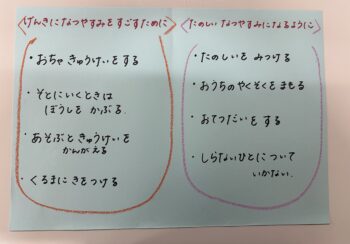 〈げんきになつやすみをすごすために〉
・おちゃ きゅうけいをする
・そとにいくときは
ぼうしを かぶる
・あそぶときゅうけいを
かんがえる
・くるまに きをつける
〈たのしい なつやすみになるように〉
・たのしいを みつける
・おうちのやくそくを まもる
・おてつだいを する
・しらないひとに ついて
いかない